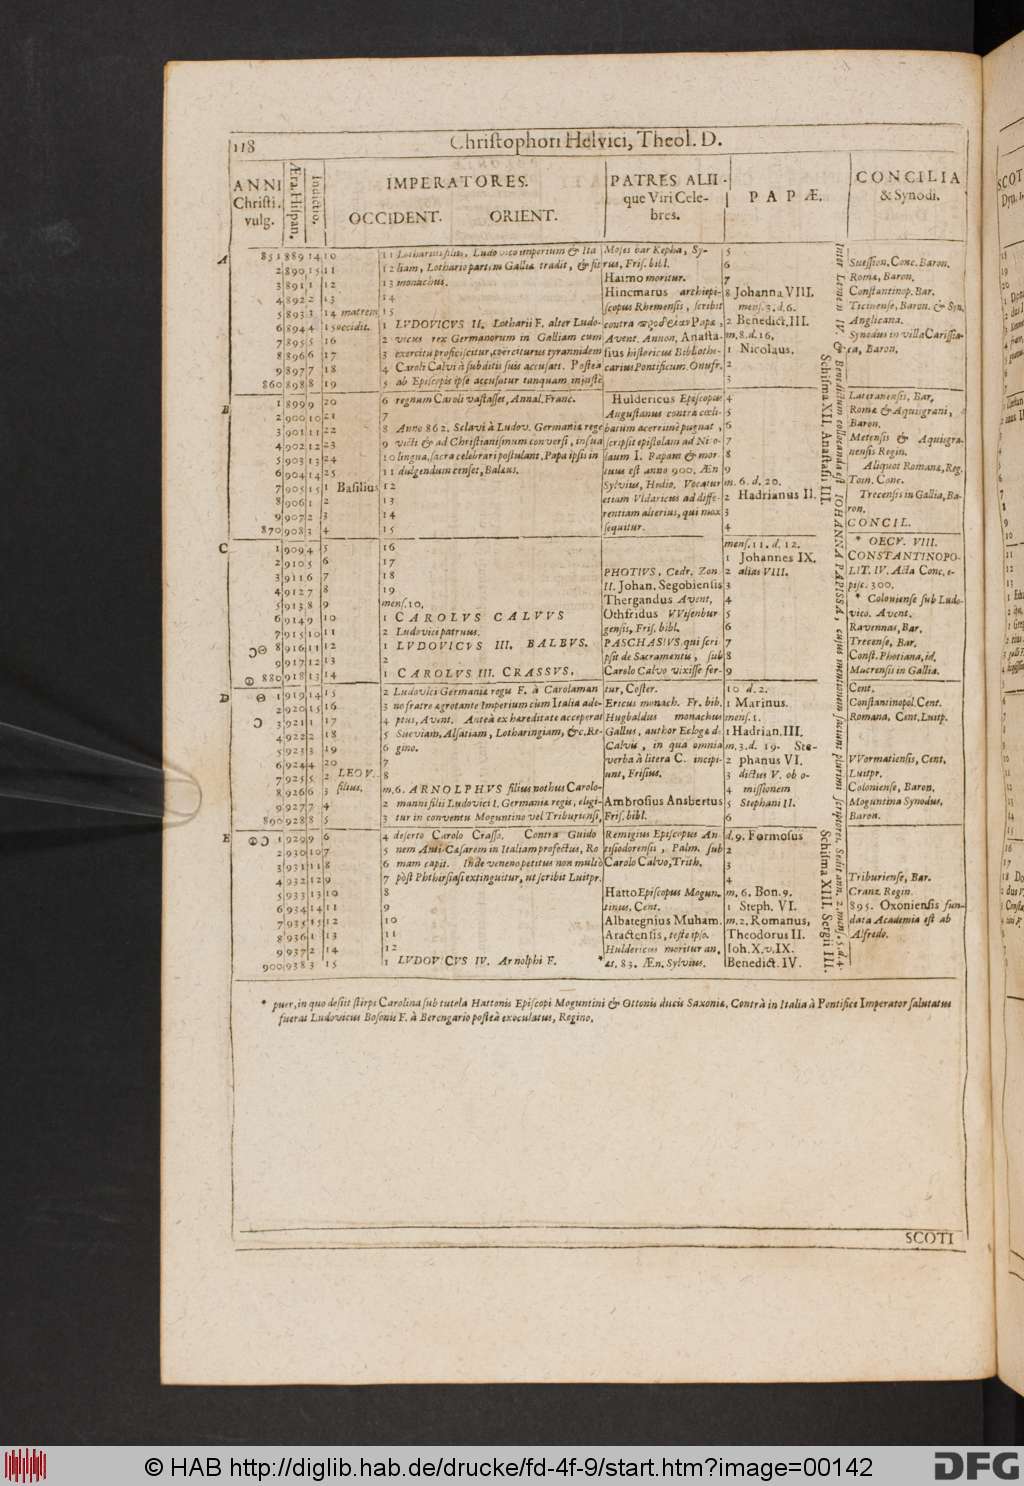 118
Christophori Helvici, Theol. D.
ANNI
Christi.
vulg.
Æra Hispan.
Indictio.
IMPERATORES.
OCCIDENT. ORIENT.
PATRES ALII-
que Viri Cele-
bres.
PAPÆ.
CONCILIA
& Synodi.
A
851 889 14 10
2 890 15 11
3 891 1 12
4 892 2 13
5 893 3 14 matrem
6 894 4 15 occidit.
7 895 5 16
8 896 6 17
9 897 7 18
860 898 8 19
B
1 899 9 20
2 900 10 21
3 901 11 22
4 902 12 23
5 903 13 24
6 904 14 25
7 905 15 1 Basilius
8 906 1 2
9 907 2 3
870 908 3 4
C
1 909 4 5
2 910 5 6
3 911 6 7
4 912 7 8
5 913 8 9
6 914 9 10
7 915 10 11
8 916 11 12
9 917 12 13
880 918 13 14
D
1 919 14 15
2 920 15 16
3 921 1 17
4 922 2 18
5 923 3 19
6 924 4 20
7 925 5 2 LEO V.
8 926 6 3 filius.
9 927 7 4
890 928 8 5
E
1 929 9 6
2 930 10 7
3 931 11 8
4 932 12 9
5 933 13 10
6 934 14 11
7 935 15 12
8 936 1 13
9 937 2 14
900 938 3 15
11 Lotharius filius, Ludovico imperium & Ita
12 liam, Lothario partem Galliæ tradit, & fit
13 monachus.
14
15
1 LVDOVICVS II. Lotharii F. alter Ludo-
2 vicus rex Germanorum in Galliam cum
3 exercitu proficiscitur, coerciturus tyrannidem
4 Caroli Calvi à subditis suis accusati. Postea
5 ab Episcopis ipse accusatur tanquam injustè
6 regnum Caroli vastasset, Annal. Franc.
7
8 Anno 862. Sclavi à Ludov. Germaniæ rege
9 victi & ad Christianismum conversi, in sua
10 lingua, sacra celebrari postulant. Papa ipsis in
11 dulgendum censet, Balæus.
12
13
14
15
16
17
18
19
mens. 10.
1 CAROLVS CALVVS
2 Ludovici patruus.
1 LVDOVICVS III. BALBVS.
2
1 CAROLVS III. CRASSVS.
2 Ludovici Germaniæ regis F. à Carolaman
3 no fratre ægrotante Imperium cum Italia ade-
4 ptus, Avent. Anteà ex hareditate acceperat
5 Sueviam, Alsatiam, Lotharingiam, &c. Re-
6 gino.
7
8
m. 6. ARNOLPHVS filius nothus Carolo-
2 manni filii Ludovici I. Germaniæ regis, eligi-
3 tur in conventu Moguntino vel Triburiensi,
4 deserto Carolo Crasso. Contra Guido
5 nem Anti-Cæsarem in Italiam profectus, Ro
6 mam capit. Inde veneno petitus non multò
7 pòst Phthiriasi extinguitur, ut scribit Luitpr.
8
9
10
11
12
1 LVDOVICVS IV. Arnolphi F. *
Moses bar Kepha, Sy-
rus, Fris. bibl.
Haimo moritur.
Hincmarus archiepi-
scopus Rhemensis, scribit
contra Papæ,
Avent. Annon. Anasta-
sius historicus Bibliothe-
carius Pontificum. Onufr.
Huldericus Episcopus
Augustanus contra cæli-
batum acerrimè pugnat,
scripsit epistolam ad Ni-o-
laum I. Papam & mor-
tuus est anno 900. Æn
Sylvius, Hedio. Vocatur
etiam Vldaricus ad diffe-
rentiam alterius, qui mox
sequitur.
PHOTIVS, Cedr. Zon
II. Johan. Segobiensis
Thergandus Avent.
Othfridus VVissenbur
gensis, Fris. bibl.
PASCHASIVS qui scri-
psit de Sacramentis, sub
Carolo Calvo vixisse fer-
tur, Coster.
Ericus monach. Fr. bib.
Hugbaldus monachus
Gallus, author Eclogæ d:
Calvis, in qua omnia
verba à litera C. incipi-
unt, Frisius.
Ambrosius Ansbertus
Fris. bibl.
Remigius Episcopus An-
tisiodorensis, Palm. sub
Carolo Calvo, Trith.
Hatto Episcopus Mogun-
tinus. Cent.
Albategnius Muham.
Aractensis, teste ipso.
Huldericus moritur an.
æt. 83. Æn. Sylvius.
5
6
7
8 Johanna VIII.
mens. 3. d. 6.
2 Benedict. III.
m. 8. d. 16.
1 Nicolaus.
2
3
4
5
6
7
8
9
m. 6. d. 20.
2 Hadrianus II.
3
4
mens. 11. d. 12.
1 Johannes IX.
2 alias VIII.
3
4
5
6
7
8
9
10 d. 2.
1 Marinus.
mens. 1.
1 Hadrian. III.
m. 3. d. 19. Ste-
2 phanus VI.
3 dictus V. ob o-
4 missionem
5 Stephani II.
6
d. 9. Formosus
2
3
4
m. 6. Bon. 9.
1 Steph. VI.
m. 2. Romanus,
Theodorus II.
Joh. X. v. IX.
Benedict. IV.
Schisma XII. Anastasii III.
Schisma XIII. Sergii III.
Inter Leonem IV. & Benedictum collocanda est JOHANNA PAPISSA, cujus mentionem faciunt plurimi scriptores. Sedit ann. 2. mens. 5. d. 4
Suession. Conc. Baron.
Romæ, Baron.
Constantinop. Bar.
Ticinense, Baron. & Syn.
Anglicana.
Synodus in villa Carissia-
ca, Baron.
Lateranensis, Bar,
Romæ & Aquisgrani,
Baron.
Metensis & Aquisgra-
nensis Regin.
Aliquot Romana, Reg.
Tom. Conc.
Trecensis in Gallia, Ba-
ron.
CONCIL.
* OECV. VIII.
CONSTANTINOPO-
LIT. IV. Acta Conc. e-
pisc. 300.
* Coloniense sub Ludo-
vico. Avent.
Ravennas, Bar.
Trecense, Bar.
Const. Photiana, id.
Mucrensis in Gallia.
Cent.
Constantinopol. Cent.
Romana, Cent. Luitp.
VVormatiensis, Cent.
Luitpr.
Coloniense, Baron,
Moguntina Synodus,
Baron.
Triburiense, Bar.
Cranz. Regin.
895. Oxoniensis fun-
data Academia est ab
Alfredo.
* puer, in quo desiit stirps Carolina sub tutela Hattonis Episcopi Moguntini & Ottonis ducis Saxoniæ. Contrà in Italia à Pontifice Imperator salutatus
fuerat Ludovicus Bosonis F. à Berengario posteà exoculatus, Regino.
SCOTI
© HAB http://diglib.hab.de/drucke/fd-4f-9/start.htm?image=00142
DFG